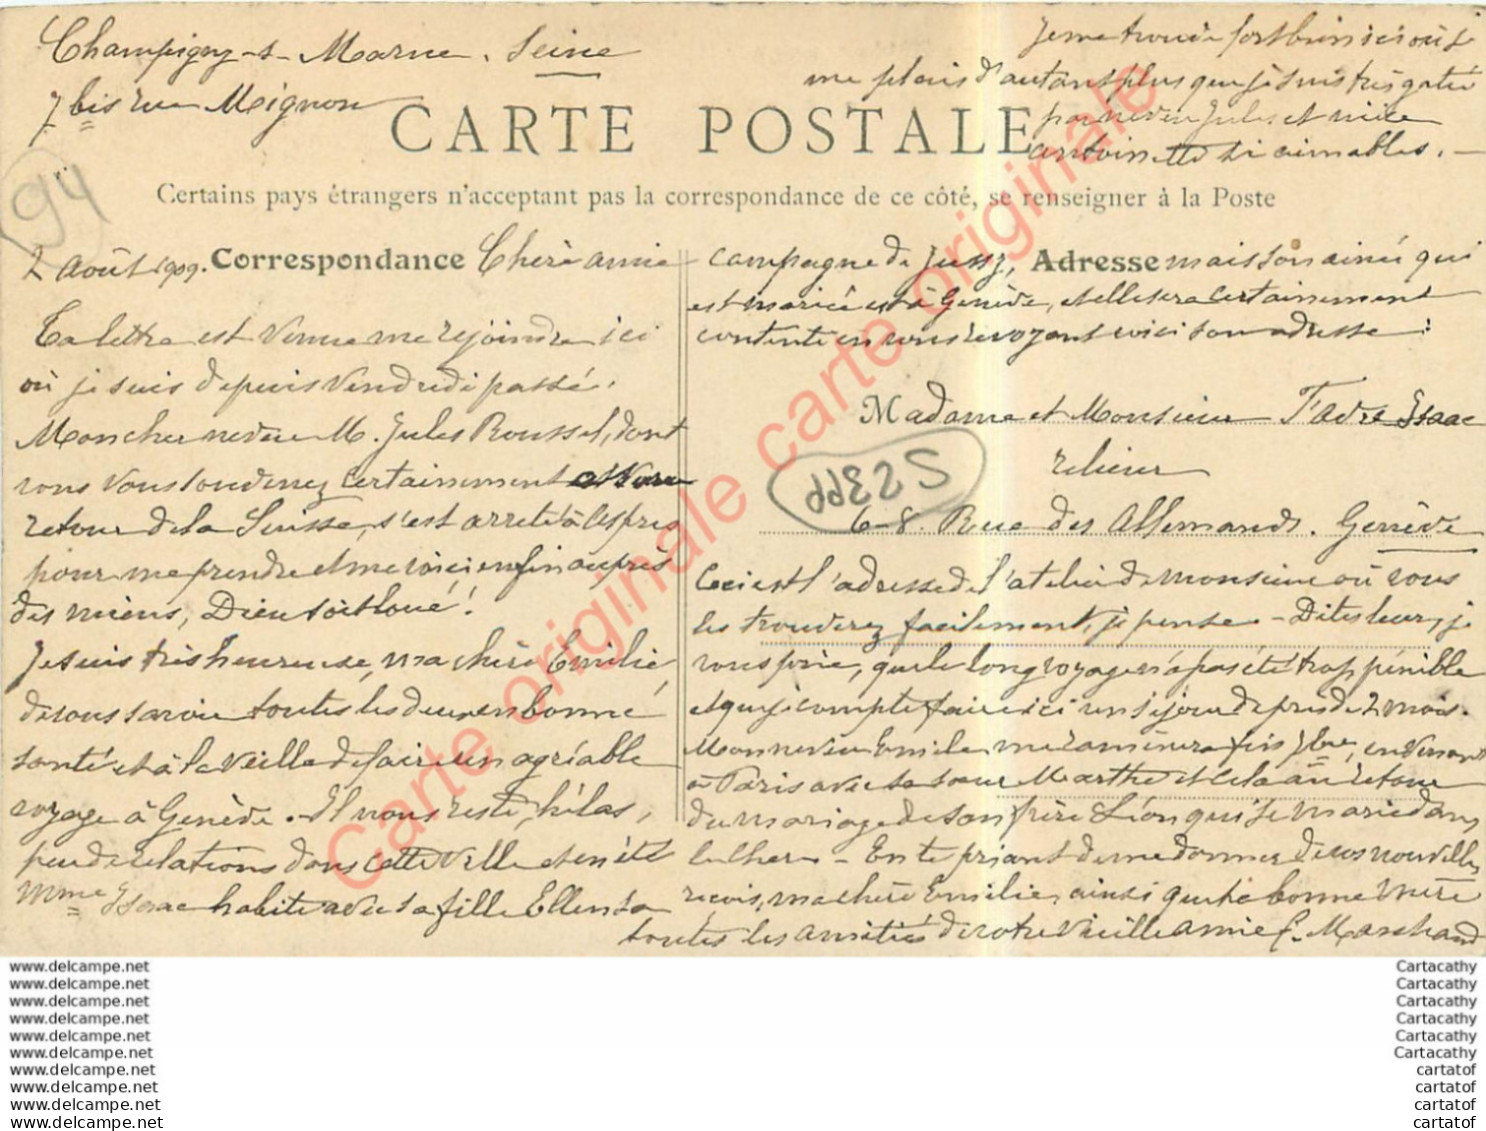 Champigny-s-Marne. Seine
7 bis rue Meignon
Je me trouve fort bien ici où je
me plais d'autant plus que je suis très gâtée
par neveu Jules et nièce
Antoinette si aimables. —
CARTE POSTALE
94
Certains pays étrangers n'acceptant pas la correspondance de ce côté, se renseigner à la Poste
2 Août 1909. Correspondance Chère amie
Ta lettre est venue me rejoindre ici
où je suis depuis Vendredi passé.
Mon cher neveu M. Jules Roussel, dont
vous vous souvenez certainement
retour de la Suisse, s'est arrêté à
pour me prendre et me voici enfin auprès
des miens, Dieu soit loué!
Je suis très heureuse, ma chère Emilie,
de vous savoir toutes les deux en bonne
santé et à la veille de faire un agréable
voyage à Genève. - Il nous reste, hélas,
peu de relations dans cette ville et en été
Mme Isaac habite avec sa fille Ellen sa
campagne de Jussy, Adresse mais son ainée qui
est mariée est à Genève, et elle sera certainement
contente en vous revoyant voici son adresse:
Madame et Monsieur Isaac
relieur
6-8. Rue des Allemands. Genève
Ceci est l'adresse de l'atelier de monsieur où vous
les trouverez facilement, je pense - Dites leur, je
vous prie, que le long voyage n'a pas été trop pénible
et que je compte faire ici un séjour de près de 2 mois.
Mon neveu Emile me ramènera fin 7bre, en venant
à Paris avec sa sœur Marthe et cela au retour
du mariage de son frère Léon qui se marie dans
le Cher - En te priant de me donner de vos nouvelles
reçois, ma chère Emilie, ainsi que ta bonne mère
toutes les amitiés de votre vieille amie E. Marchand
Carte originale carte originale carte originale
www.delcampe.net
www.delcampe.net
www.delcampe.net
www.delcampe.net
www.delcampe.net
www.delcampe.net
www.delcampe.net
www.delcampe.net
www.delcampe.net
www.delcampe.net
Cartacathy
Cartacathy
Cartacathy
Cartacathy
Cartacathy
Cartacathy
cartatof
cartatof
cartatof
cartatof